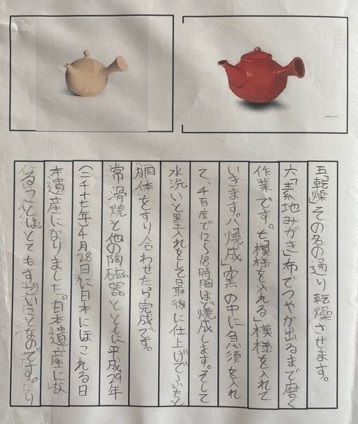 五「乾燥」その名の通り乾燥させます。
六「素地みがき」布でつやが出るまで磨く
作業です。七「模様を入れる」模様を入れて
いきます。八「焼成」窯の中に急須を入れ
て、千百度で12から18時間ほど焼成します。そして
水洗いと墨入れをして最後に仕上げでふたと
胴体をすり合わせたら完成です。
常滑焼と他の陶磁器とともに平成29年
(二千十七年)4月28日に日本にほこれる日
本遺産になりました。日本遺産にな
ることはとてもすごいことなのです。